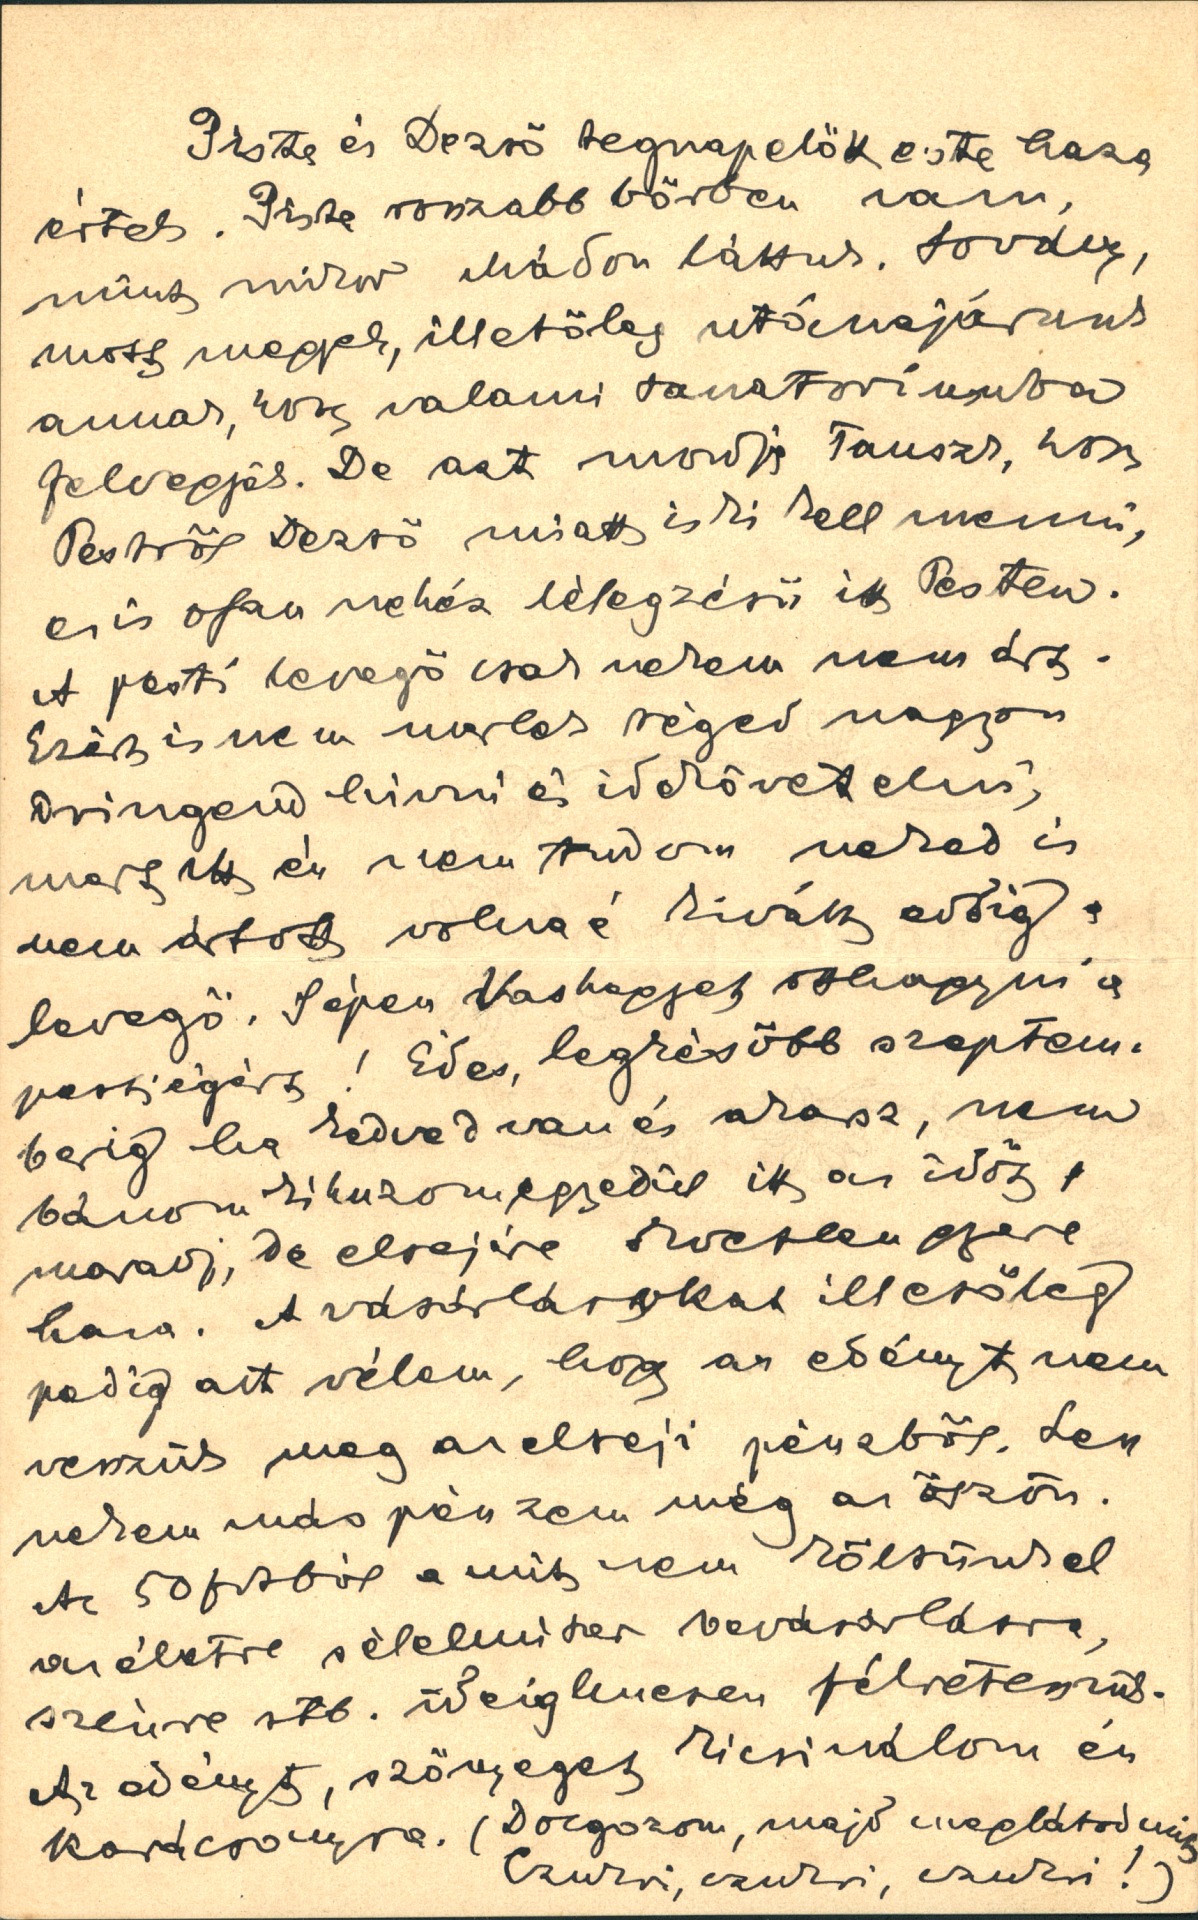 Piste és Dezső tegnapelőtt este haza
értek. Piste rosszabb bőrben van,
mint mikor Mádon láttuk. Sovány,
most megyek, illetőleg utánajárunk
annak, hogy valami sanatoriumba
felvegyék. De azt mondja Tauszk, hogy
Pestről Dezső miatt is ki kell menni,
ez is olyan nehéz lélegzésű itt Pesten.
A pesti levegő csak nekem nem árt.
Ezért is nem merlek téged nagyon
dringend hivni és idekövetelni,
mert itt én nem tudom neked is
nem ártott volna é kivált eddig a
levegő. Szépen Vashegyet otthagyni a
pestiégért! Édes, legkésőbb szeptem-
berig ha kedved van és akarsz, nem
bánom kihuzom egyedül itt az időt,
maradj, de elsejére okvetlen gyere
haza. A vásárlásokat illetőleg
pedig azt vélem, hogy az edényt nem
vesszük meg az elseji pénzből. Lesz
nekem más pénzem még az őszön.
Az 50 frtból amit nem költünk el
az életre s élelmiszer bevásárlásra,
szénre stb. ideiglenesen félreteszük.
Az edényt, szőnyeget kicsinálom én
karácsonyra. (Dolgozom, majd meglátod mit
Czukri, czukri, czukri!)